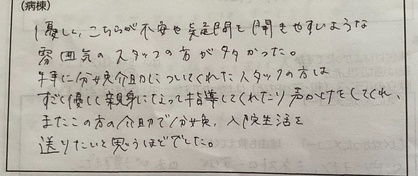 (病棟)
優しく、こちらが不安や疑問を聞きやすいような
雰囲気のスタッフの方が多かった。
特に分娩介助についてくれたスタッフの方は
すごく優しく親身になって指導してくれたり声かけをしてくれ、
またこの方の介助で分娩、入院生活を
送りたいと思うほどでした。